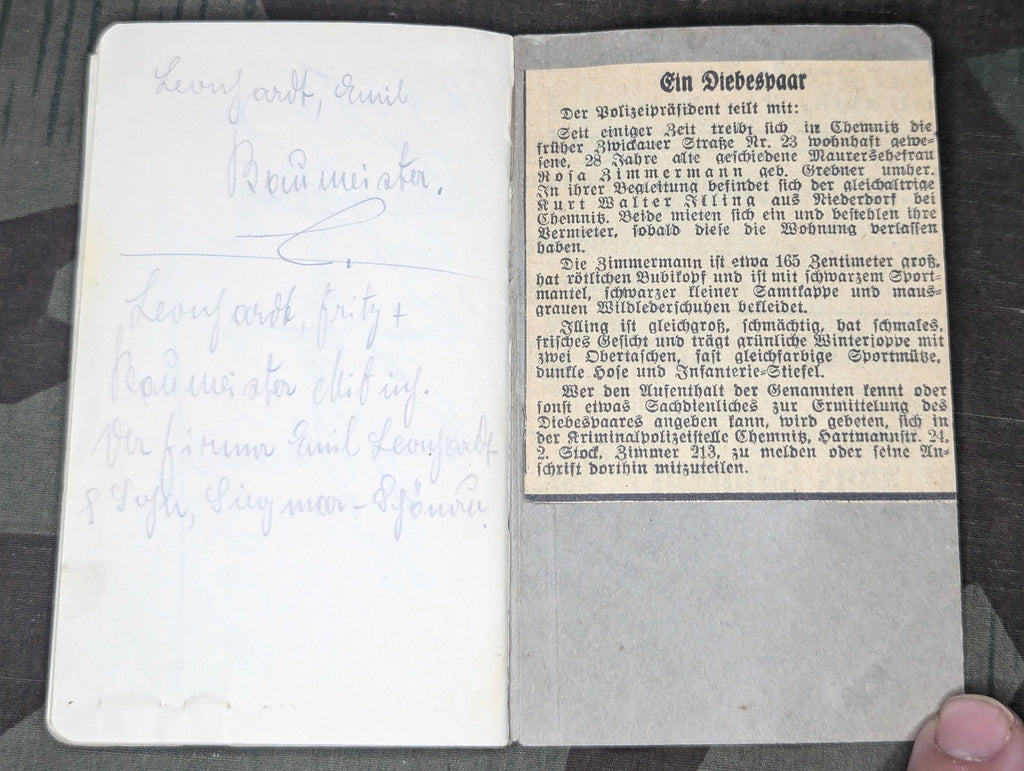 Leonhardt, Emil
Baumeister.
Leonhardt, Fritz +
Baumeister Mit inh.
Der Firma Emil Leonhardt
& Sohn, Siegmar-Schönau.
Ein Diebespaar
Der Polizeipräsident teilt mit:
Seit einiger Zeit treibt sich in Chemnitz die
früher Zwickauer Straße Nr. 23 wohnhaft gewe-
sene, 28 Jahre alte geschiedene Maurersehefrau
Rosa Zimmermann geb. Grebner umher.
In ihrer Begleitung befindet sich der gleichaltrige
Kurt Walter Illing aus Niederdorf bei
Chemnitz. Beide mieten sich ein und bestehlen ihre
Vermieter, sobald diese die Wohnung verlassen
haben.
Die Zimmermann ist etwa 165 Zentimeter groß,
hat rötlichen Bubikopf und ist mit schwarzem Sport-
mantel, schwarzer kleiner Samtkappe und maus-
grauen Wildlederschuhen bekleidet.
Illing ist gleichgroß, schmächtig, hat schmales,
frisches Gesicht und trägt grünliche Winterjoppe mit
zwei Obertaschen, fast gleichfarbige Sportmütze,
dunkle Hose und Infanterie-Stiefel.
Wer den Aufenthalt der Genannten kennt oder
sonst etwas Sachdienliches zur Ermittelung des
Diebespaares angeben kann, wird gebeten, sich in
der Kriminalpolizeistelle Chemnitz, Hartmannstr. 24,
2. Stock, Zimmer 213, zu melden oder seine An-
schrift dorthin mitzuteilen.